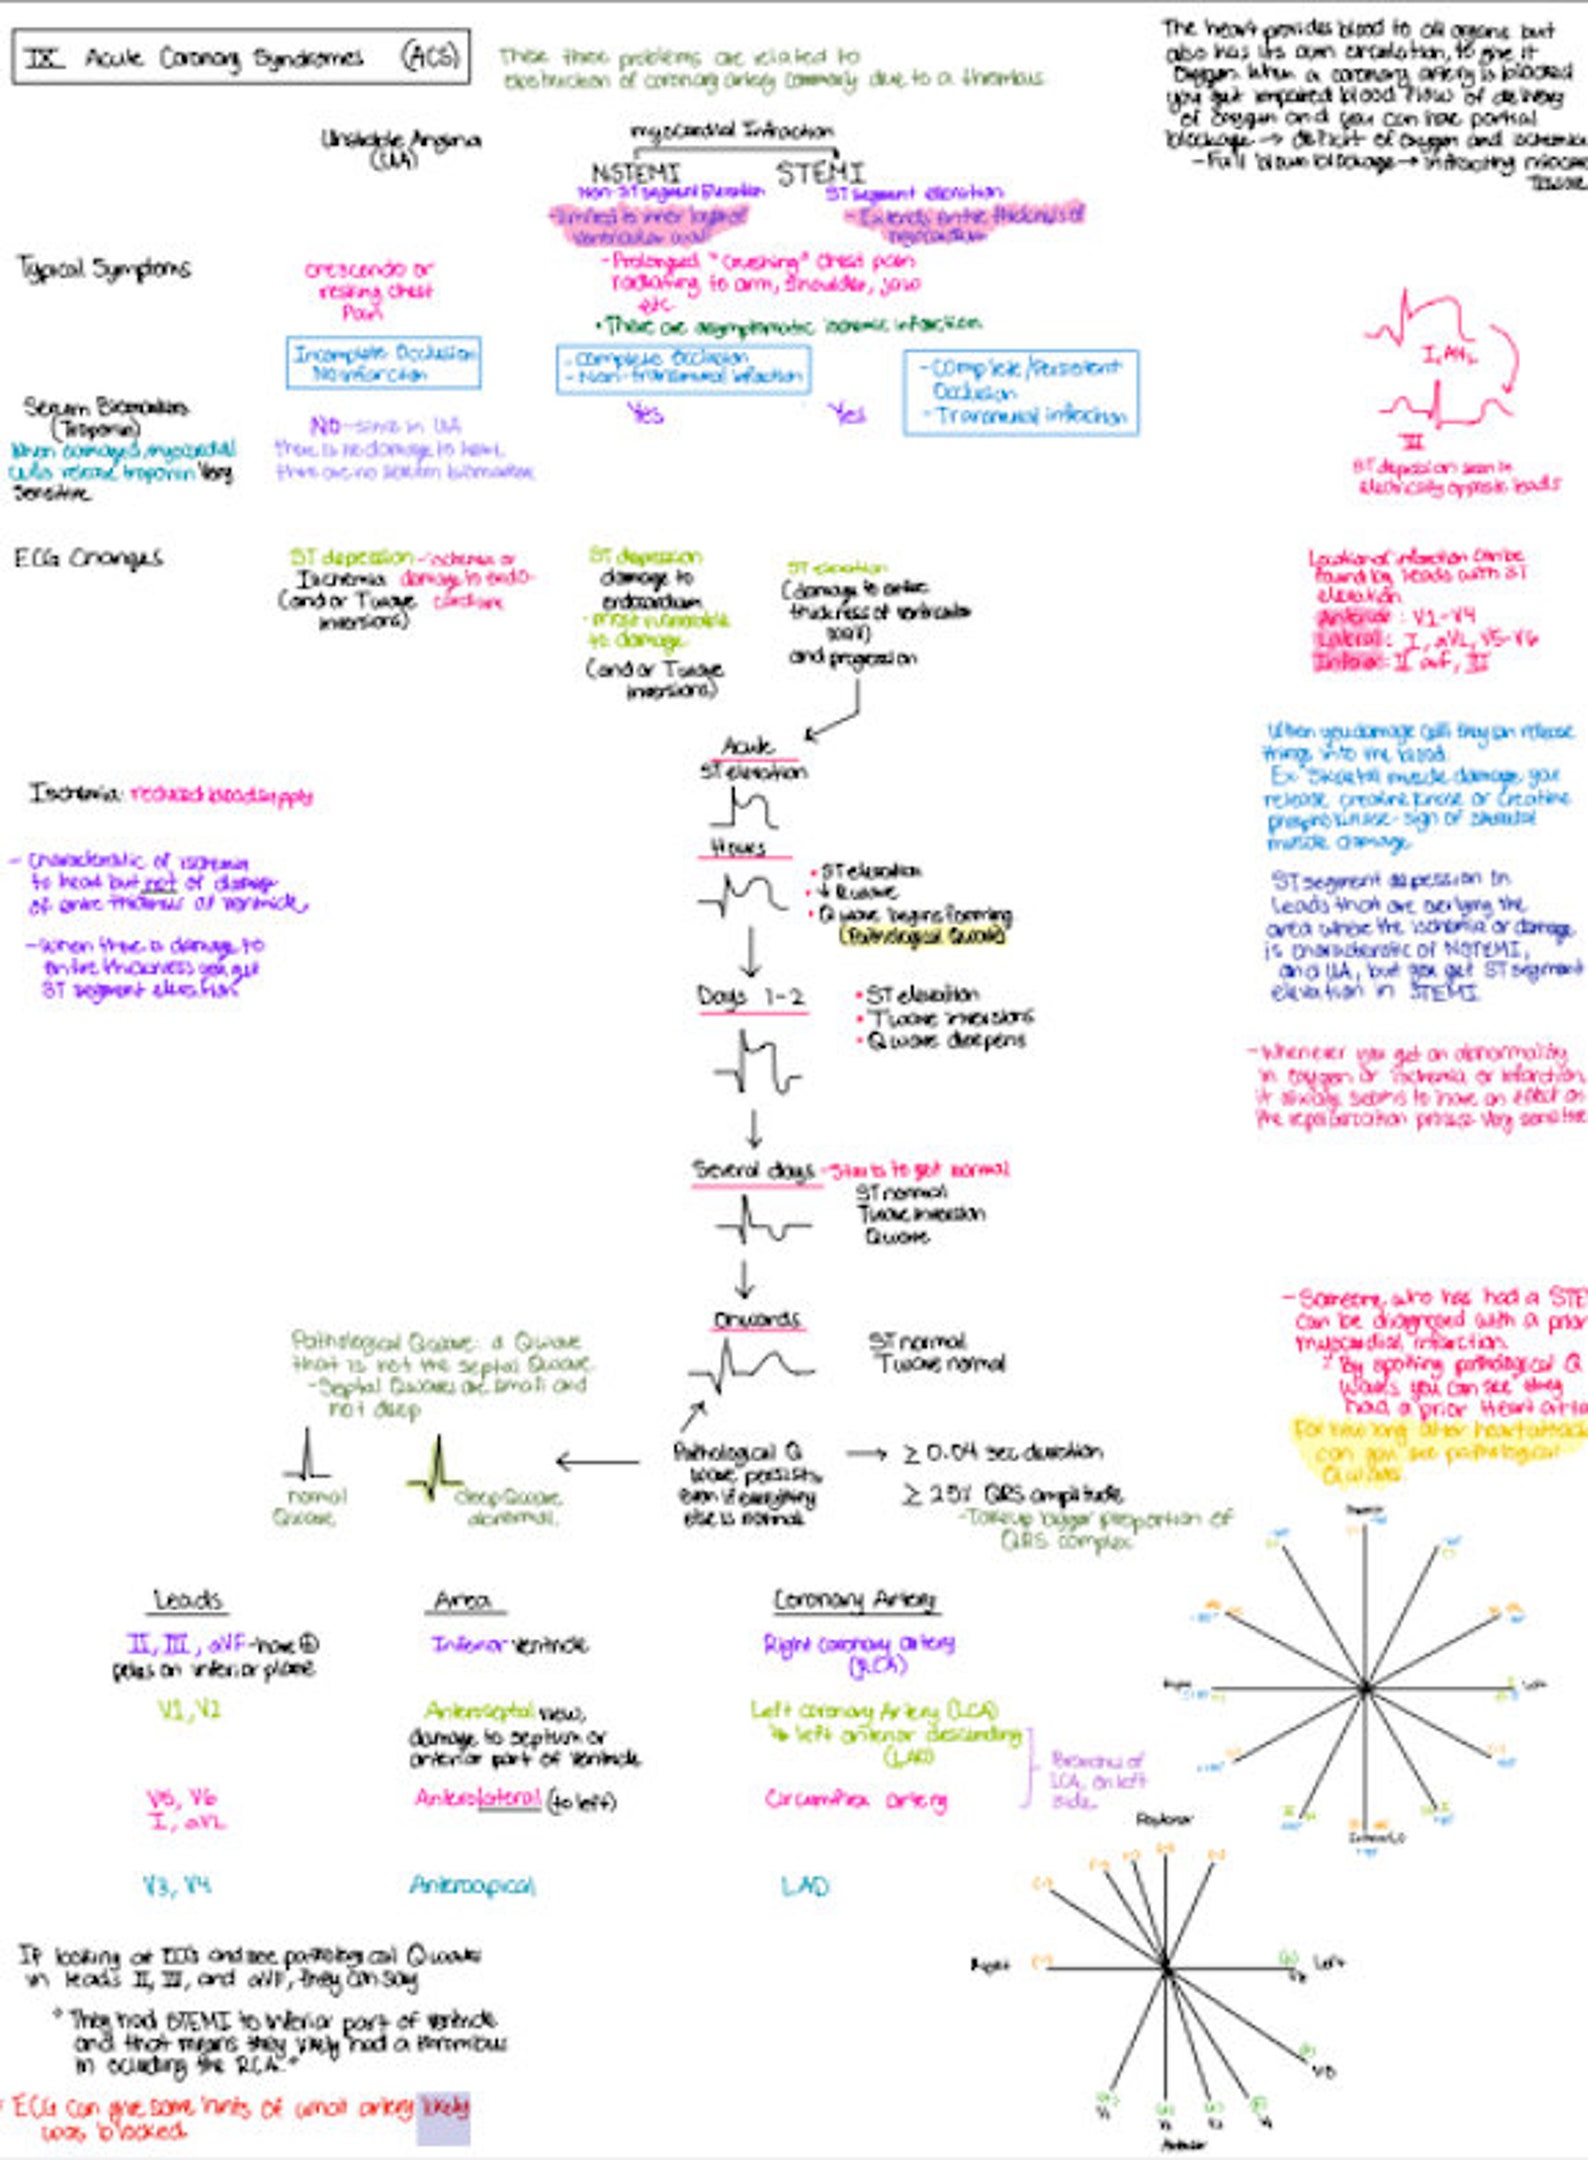 IX Acute Coronary Syndromes (ACS)
These three problems are related to
obstruction of coronary artery commonly due to a thrombus
The heart provides blood to all organs but
also has its own circulation, to give it
oxygen. When a coronary artery is blocked
you get impaired blood flow of delivery
of oxygen and you can have partial
blockage → deficit of oxygen and ischemia
- Full blown blockage → infarcting
tissue
Unstable Angina
(UA)
myocardial Infarction
NSTEMI
STEMI
Non-ST segment Elevation
ST segment elevation
- Limited to inner layer of
ventricular wall
- Extends entire thickness of
myocardium
Typical Symptoms
crescendo or
resting chest
Pain
- Prolonged "crushing" chest pain
radiating to arm, shoulder, jaw
etc.
• There are asymptomatic ischemic infarction
Incomplete Occlusion
No infarction
- Complete Occlusion
- Non-transmural infarction
- Complete/Persistent
Occlusion
- Transmural infarction
Serum Biomarkers
(Troponin)
When damaged, myocardial
cells release troponin Very
Sensitive
NO - since in UA
there is no damage to heart,
there are no serum biomarkers
Yes
Yes
I, aVL
III
ST depression seen in
electrically opposite leads
ECG Changes
ST depression - ischemia or
Ischemia damage to endo-
(and or T wave cardium
inversions)
ST depression
damage to
endocardium
- most vulnerable
to damage
(and or T wave
inversions)
ST elevation
(damage to entire
thickness of ventricular
wall)
and progression
Location of infarction can be
found by leads with ST
elevation
Anterior: V1-V4
Lateral: I, aVL, V5-V6
Inferior: II avF, III
Acute
ST elevation
Ischemia: reduced blood supply
- Characteristic of ischemia
to heart but not of damage
of entire thickness of ventricle,
- When there is damage to
entire thickness you get
ST segment elevation
Hours
• ST elevation
• ↓ R wave
• Q wave begins forming
(Pathological Q wave)
When you damage cells they can release
things into the blood.
Ex: Skeletal muscle damage, you
release creatine kinase or creatine
phosphokinase - sign of skeletal
muscle damage
ST segment depression in
leads that are overlying the
area where the ischemia or damage
is characteristic of NSTEMI,
and UA, but you get ST segment
elevation in STEMI
Days 1-2
• ST elevation
• T wave inversions
• Q wave deepens
- Whenever you get an abnormality
in oxygen or ischemia or infarction,
it always seems to have an effect on
the repolarization process. Very sensitive
Several days - Starts to get normal
ST normal
T wave inversion
Q wave
Onwards
ST normal
T wave normal
- Someone who has had a STE
can be diagnosed with a prior
myocardial infarction.
By spotting pathological Q
waves you can see they
had a prior Heart atta
For how long after heart attack
can you see pathological
Q waves
Pathological Q wave: a Q wave
that is not the septal Q wave.
- Septal Q waves are small and
not deep
normal
Q wave
deep Q wave
abnormal
Pathological Q
wave persists,
even if everything
else is normal
≥ 0.04 sec duration
≥ 25% QRS amplitude
- Take up bigger proportion of
QRS complex
Leads
Area
Coronary Artery
II, III, aVF - have ⊕
poles on inferior plane
Inferior ventricle
Right coronary artery
(RCA)
V1, V2
Anteroseptal view,
damage to septum or
anterior part of ventricle
Left coronary Artery (LCA)
↳ left anterior descending
(LAD)
Branches of
LCA, on left
side.
V5, V6
I, aVL
Anterolateral (to left)
Circumflex artery
V3, V4
Anteroapical
LAD
Left
Posterior
Right
Left
Anterior
If looking at ECGs and see pathological Q waves
in leads II, III, and aVF, they can say
"They had STEMI to inferior part of ventricle
and that means they likely had a thrombus
in ocluding the RCA."
ECG can give some hints of what artery likely
was blocked